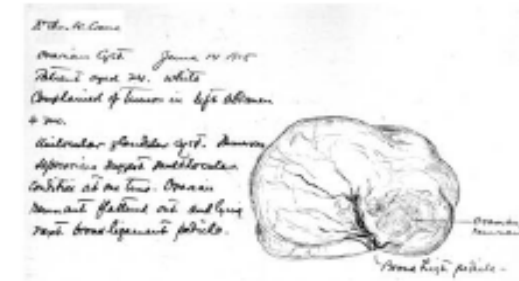 Ovarian Cyst June 14 1915
Patient aged 24. White
Complained of tumor in left abdomen
4 mo.
Unilocular glandular cyst.
suggest multilocular
condition at one time. Ovarian
remnant flattened out and lying
next broad ligament pedicle.
Ovarian
remnant
Broad ligt pedicle -